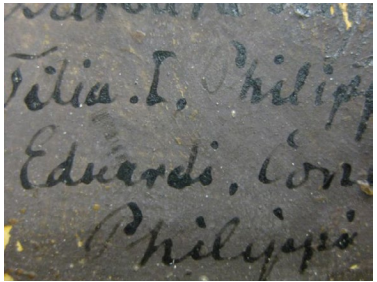 Filia.I, Philipp
Eduardi, Con
Philippi